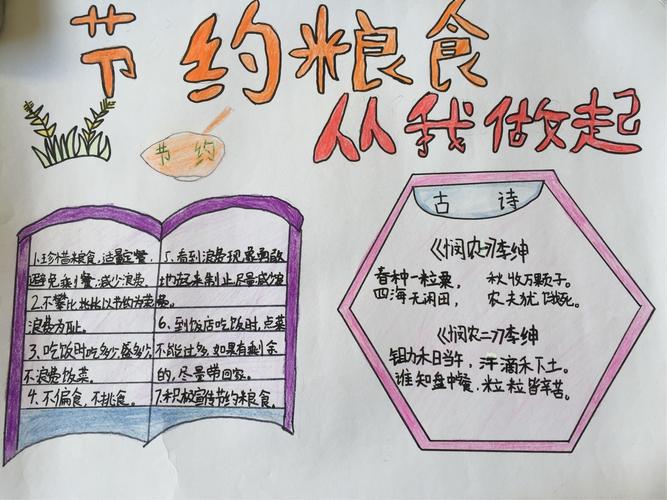 节约粮食
从我做起
节约
1.珍惜粮食,适量定餐,
避免剩餐,减少浪费
2.不攀比,以节约为荣,
浪费为耻。
3.吃饭时吃多少,盛多少,
不浪费饭菜。
4.不偏食,不挑食。
5.看到浪费现象勇敢
地起来制止,尽量减少浪
费。
6.到饭店吃饭时,点菜
不能过多,如果有剩余
的,尽量带回家。
7.积极宣传节约粮食。
古诗
《悯农一》李绅
春种一粒粟, 秋收万颗子。
四海无闲田, 农夫犹饿死。
《悯农二》李绅
锄禾日当午,汗滴禾下土。
谁知盘中餐,粒粒皆辛苦。